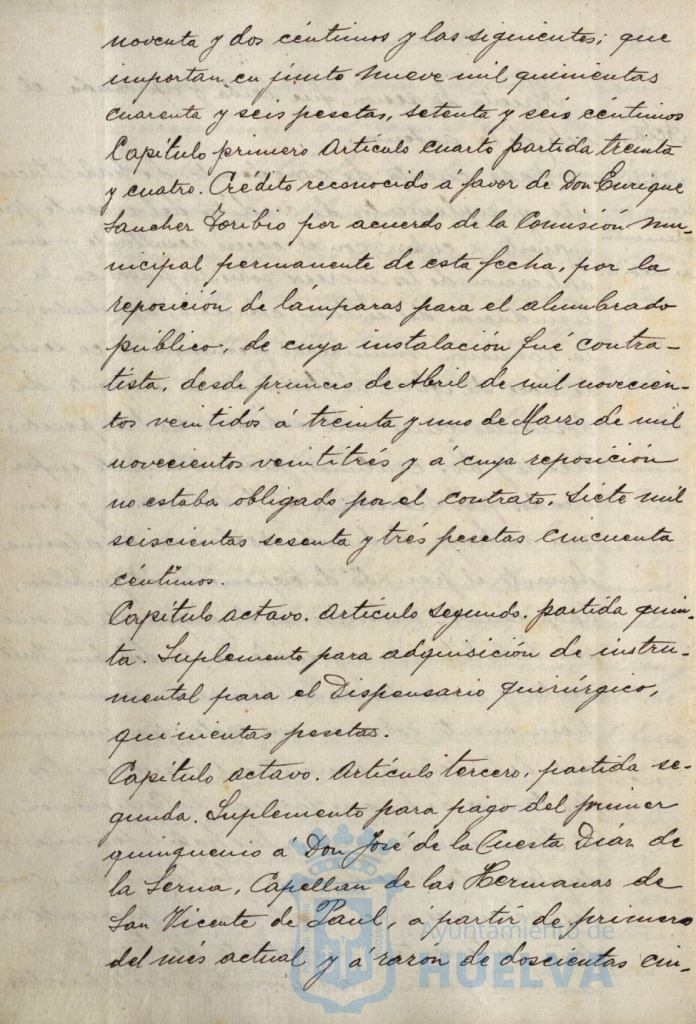 noventa y dos céntimos y las siguientes; que
importan en junto nueve mil quinientas
cuarenta y seis pesetas, setenta y seis céntimos
Capítulo primero Artículo cuarto partida treinta
y cuatro. Crédito reconocido á favor de Don Enrique
Sancher Toribio por acuerdo de la Comisión Mu-
nicipal permanente de esta fecha, por la
reposición de lámparas para el alumbrado
público, de cuya instalación fué contra-
tista, desde primero de Abril de mil novecien-
tos veintidós á treinta y uno de Marzo de mil
novecientos veintitrés y á cuya reposición
no estaba obligado por el contrato, siete mil
seiscientas sesenta y tres pesetas cincuenta
céntimos.
Capítulo octavo. Artículo segundo. partida quin-
ta. Suplemento para adquisición de instru-
mental para el Dispensario quirúrgico,
quinientas pesetas.
Capítulo octavo. Artículo tercero, partida se-
gunda. Suplemento para pago del primer
quinquenio á Don José de la Cuesta Díaz de
la Serna, Capellan de las Hermanas de
San Vicente de Paul, á partir de primero
del més actual y á razón de doscientas cin-
Ayuntamiento de
HUELVA